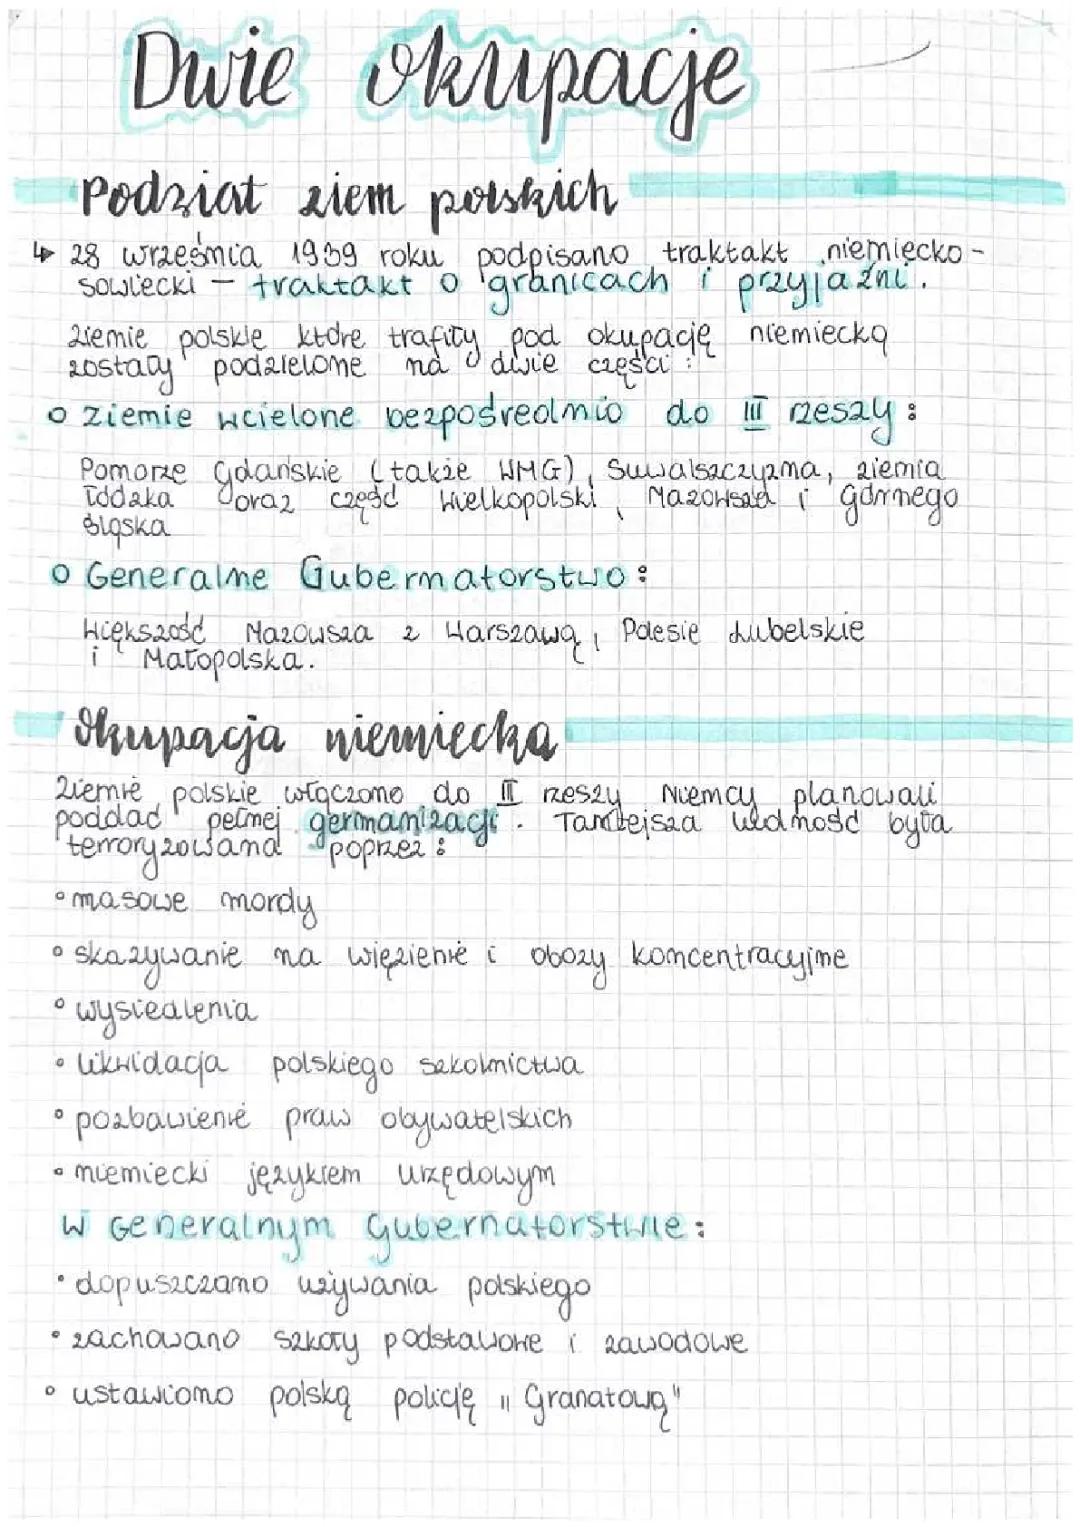 Dwie okupacje
Podział ziem polskich
↳ 28 września 1939 roku podpisano traktakt niemiecko-
sowiecki – traktakt o granicach i przyjaźni.
Ziemie polskie które trafiły pod okupację niemiecką
zostały podzielone na dwie części:
o ziemie wcielone bezpośrednio do III rzeszy:
Pomorze Gdańskie (także WMG), Suwalszczyzna, ziemia
łódzka oraz część Wielkopolski, Mazowsza i górnego
śląska
o Generalne Gubernatorstwo:
Większość Mazowsza z Warszawą, Polesie Lubelskie
i Małopolska.
Okupacja niemiecka
Ziemie polskie włączono do III rzeszy Niemcy planowali
poddać pełnej germanizacji. Tamtejsza ludność była
terroryzowana poprzez:
• masowe mordy
• skazywanie na więzienie i obozy koncentracyjne
• wysiedlenia
• likwidacja polskiego szkolnictwa
• pozbawienie praw obywatelskich
• niemiecki językiem urzędowym
W Generalnym Gubernatorstwie:
• dopuszczano używania polskiego
• zachowano szkoły podstawowe i zawodowe
• ustawiono polską policję "Granatową"